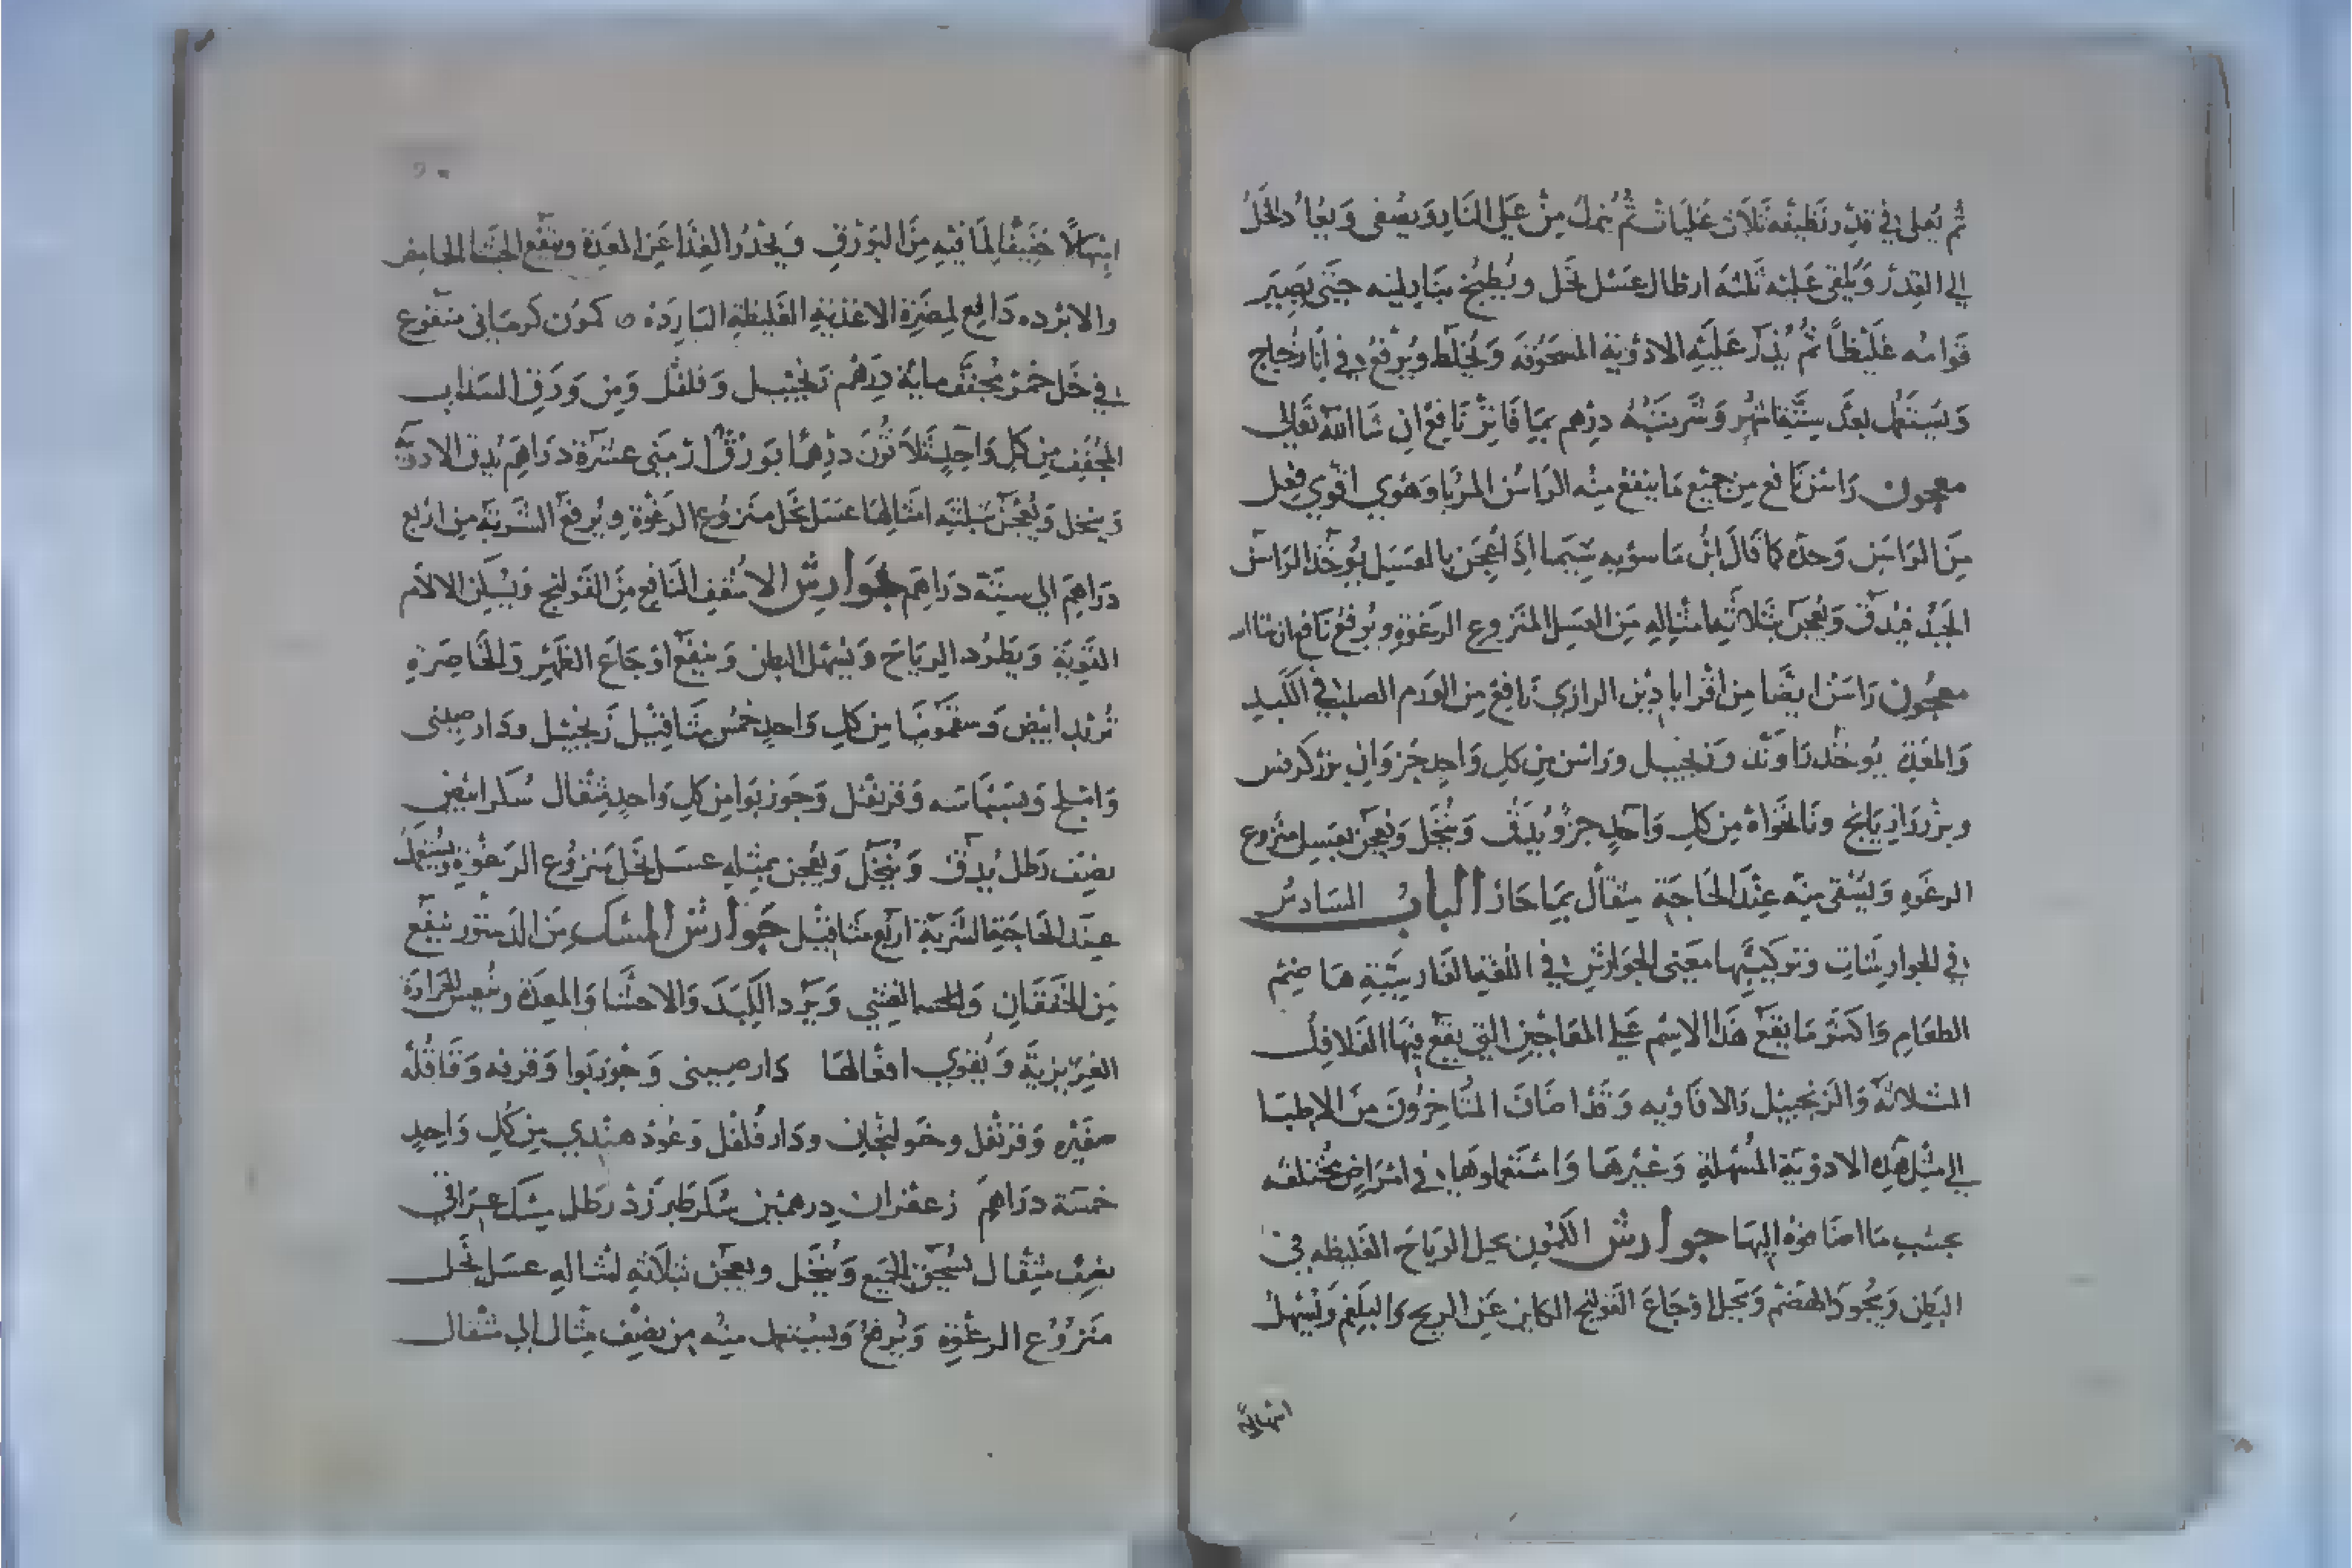 ثم يغلى في قدر نظيفه ثلاث غليات ثم ينزل من على النار ويصفى ويعاد الخل
الى القدر ويلقى عليه ثلثه ارطال عسل نحل ويطبخ بنار لينه حتى يصير
قوامه غليظا ثم يذر عليه الادوية المسحوقه ويخلط ويرفع في انا زجاج
ويستعمل بعد ستة اشهر وشربته درهم بما فاتر نافع ان شا الله تعالى
معجون راسن نافع من جميع ما ينفع منه الراسن المربا وهوي اقوي فعل
من الراسن وحده كما قال ابن ماسويه سيما اذا عجن بالعسل يوخذ الراسن
الجيد فيدق ويعجن بثلاثة امثاله من العسل المنزوع الرغوة ويرفع نافع ان شا الله
معجون راسن ايضا من اقراباذين الرازي نافع من الورم الصلب في الكبد
والمعدة يوخذ راوند وزنجبيل وراسن من كل واحد جزوان بزر كرفس
وبزر رازيانج ونانخواة من كل واحد جزو يدق وينخل ويعجن بعسل منزوع
الرغوه ويسقى منه عند الحاجة مثقال بما حار الباب السادس
في الجوارشنات وتركيبها معنى الجوارش في اللغة الفارسيه هاضم
الطعام واكثر ما يقع هذا الاسم على المعاجين التي يقع فيها الفلافل
الثلاثه والزنجبيل والافاويه وقد اضاف المتاخرون من الاطبا
الى مثل هذه الادوية المسهلة وغيرها واستعملوها في امراض مختلفه
بحسب ما اضافوه اليها جوارش الكمون يحل الرياح الغليظه في
البطن ويجود الهضم ويحل اوجاع القولنج الكاين عن الريح والبلغم ويسهل
اسهالا
اسهالا خفيفا لما فيه من البورق ويحدر الغذا عن المعدة وينفع الجشا الحامض
والابرده دافع لمضرة الاغذية الغليظة الباردة ه كمون كرماني منقوع
في خل خمر مجفف ماية درهم زنجبيل وفلفل ومن ورق السذاب
المجفف من كل واحد ثلاثون درهما بورق ارمني عشرة دراهم يدق الادويه
وينخل ويعجن بثلثه امثالها عسل نحل منزوع الرغوة ويرفع الشربه من اربع
دراهم الى ستة دراهم جوارش الاسقف النافع من القولنج ويسكن الالام
القوية ويطرد الرياح ويسهل البطن وينفع اوجاع الظهر والخاصرة
تربد ابيض وسقمونيا من كل واحد خمس مثاقيل زنجبيل ودارصيني
واملج وبسباسه وقرنفل وجوزبوا من كل واحد مثقال سكر ابيض
نصف رطل يدق وينخل ويعجن بمثله عسل نحل منزوع الرغوة ويستعمل
عند الحاجة الشربة اربع مثاقيل جوارش المسك من الدستور ينفع
من الخفقان والغشي وبرد الكبد والاحشا والمعدة وينعش الحرارة
الغريزية ويقوي افعالها دارصيني وجوزبوا وقرفه وقاقله
صغيره وقرنفل وخولنجان ودارفلفل وعود هندي من كل واحد
خمسة دراهم زعفران درهمين سكر طبرزد رطل مسك عراقي
نصف مثقال يسحق الجميع وينخل ويعجن بثلاثة امثاله عسل نحل
منزوع الرغوة ويرفع ويستعمل منه من نصف مثقال الى مثقال